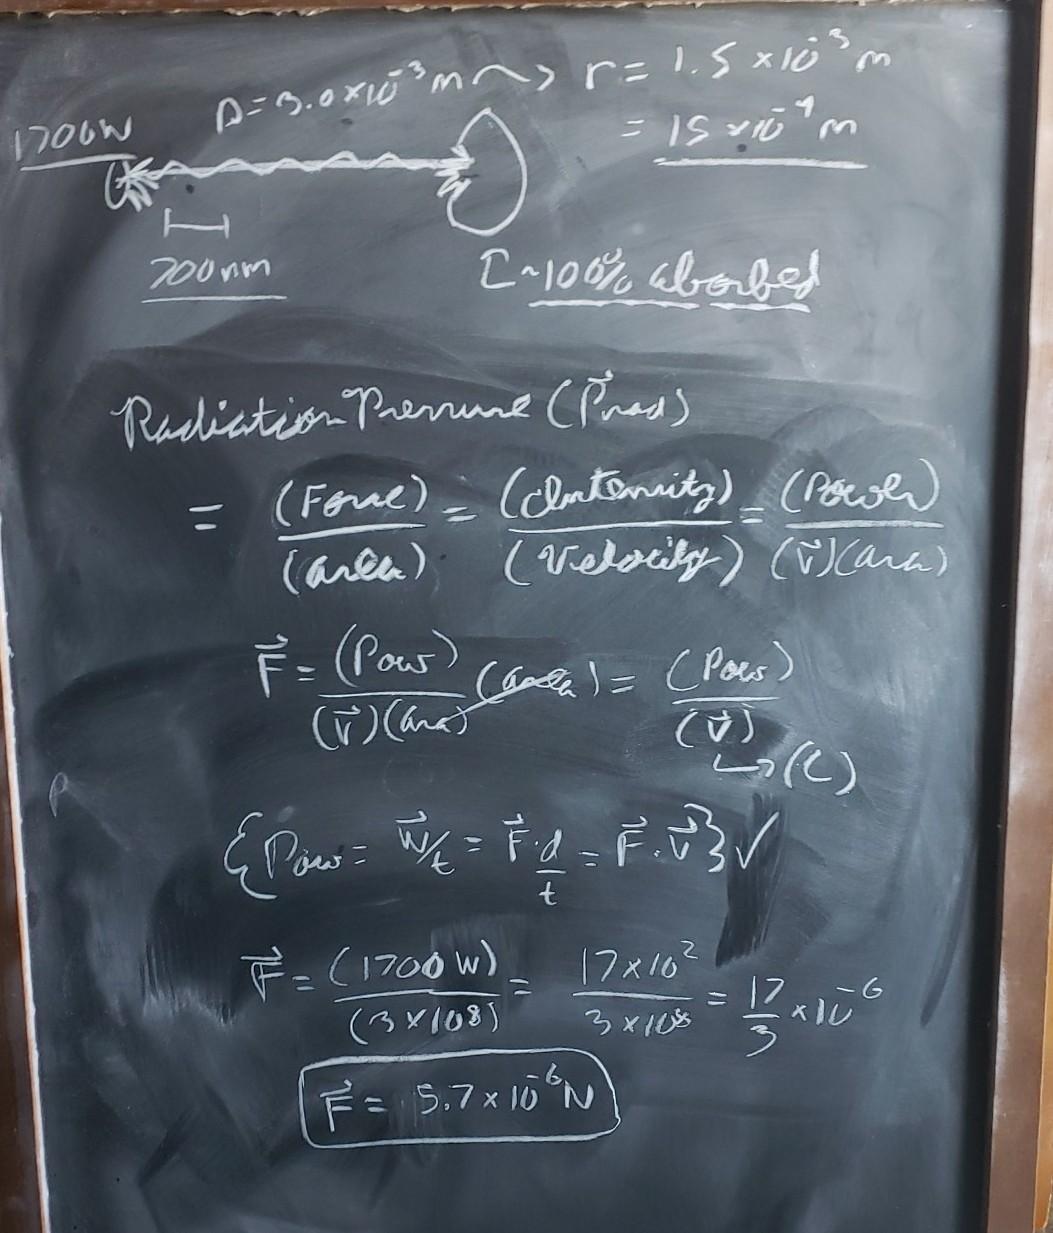 D=3.0×10⁻³m → r = 1.5×10⁻³ m
1700W
= 15×10⁻⁴ m
700nm
[~100% absorbed
Radiation Pressure (P⃗rad)
= (Force)/(area) = (Intensity)/(Velocity) = (Power)/(V⃗)(area)
F⃗ = (Pow)/(V⃗)(area) (area) = (Pow)/(V⃗)
↳(C)
{Pow = W⃗/t = F⃗·d/t = F⃗·V⃗} ✓
F⃗ = (1700W)/(3×10⁸) = 17×10²/3×10⁸ = 17/3 ×10⁻⁶
F⃗ = 5.7×10⁻⁶N